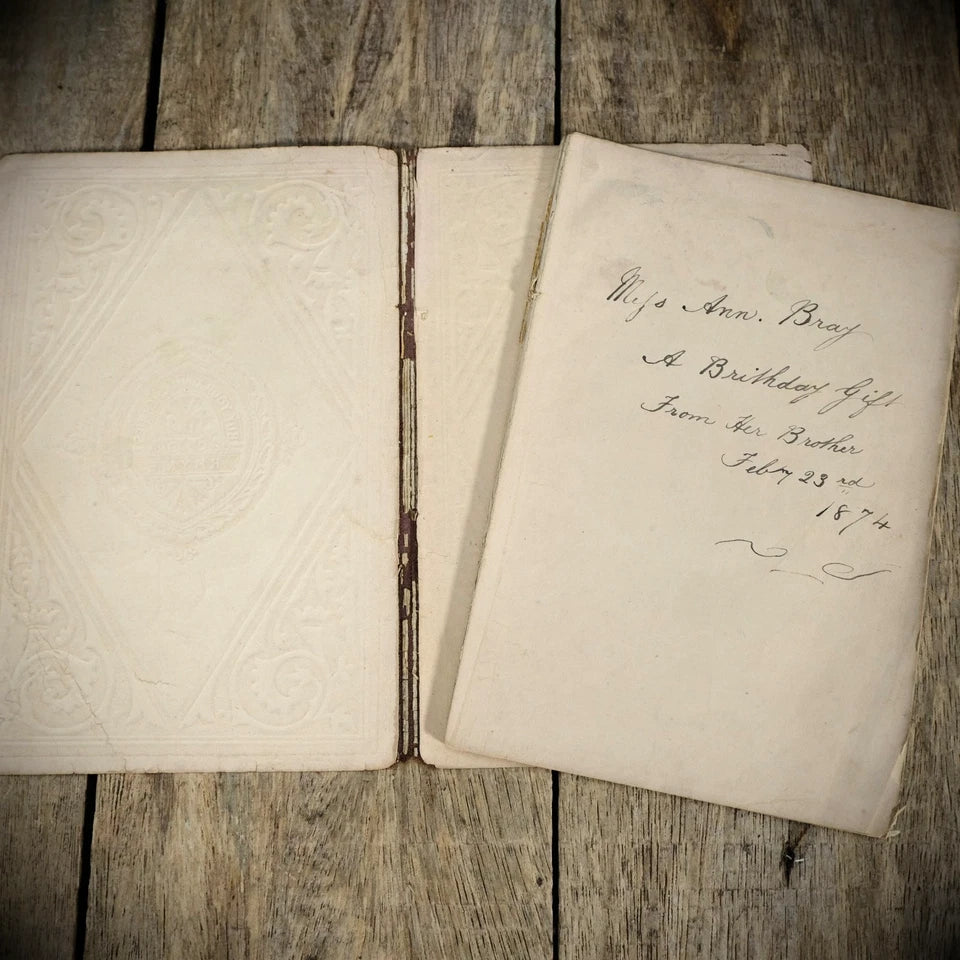 Miſs Ann. Bray
A Brithday Gift
From Her Brother
Feby 23rd
1874